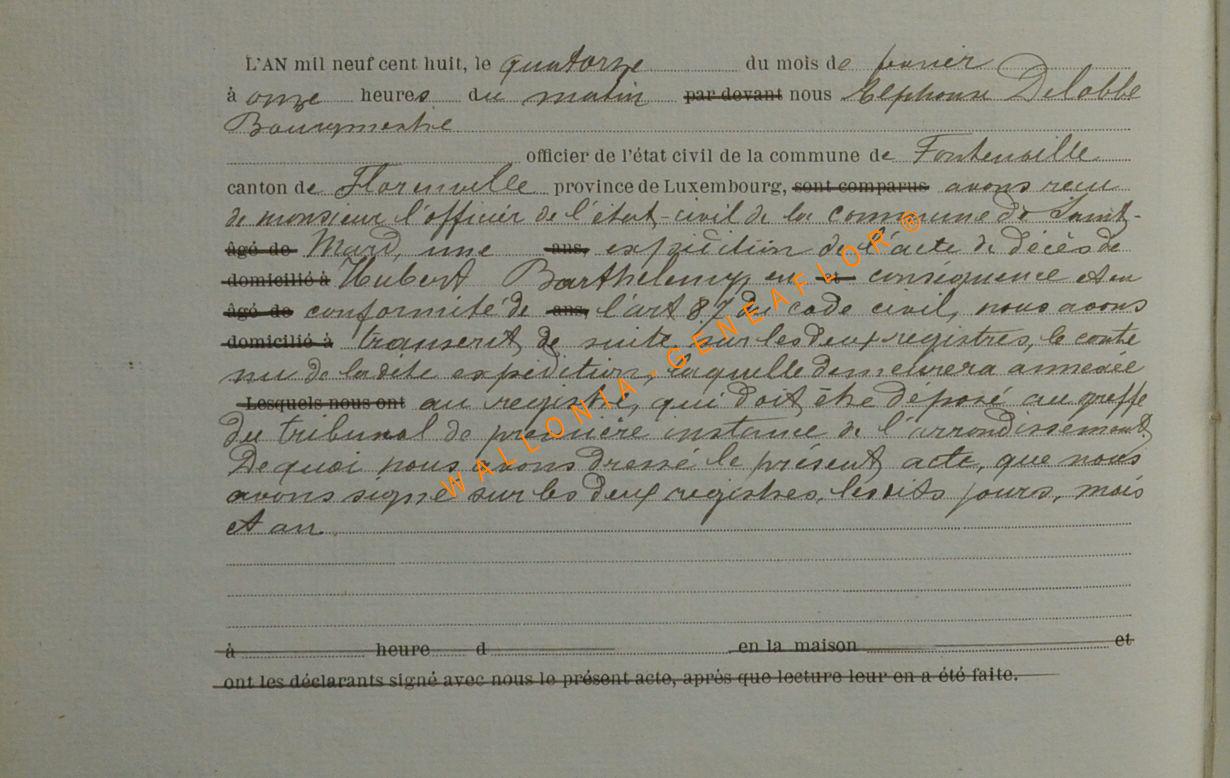 L'AN mil neuf cent huit, le quatorze du mois de fevrier
à onze heures du matin par devant nous Alphonse Delobbe
Bourgmestre
officier de l'état civil de la commune de Fontenoille
canton de Florenville province de Luxembourg, sont comparus avons recu
de monsieur l'officier de l'état-civil de la commune de Saint-
âgé de Mard, une ans, expédition de l'acte de décès de
domicilié à Hubert Barthelemy, en à conséquence et en
âgé de conformité de ans, l'art 87 du code civil, nous avons
domicilié à transcrit de suite, sur les deux registres, le conte
nu de ladite expédition, laquelle demeurera annexée
Lesquels nous ont au registre, qui doit être déposé au greffe
du tribunal de première instance de l'arrondissement.
De quoi nous avons dressé le présent acte, que nous
avons signé sur les deux registres, lesdits jours, mois
et an.
à heure d en la maison et
ont les déclarants signé avec nous le présent acte, après que lecture leur en a été faite.
WALLONIA-GENEAFLOR®